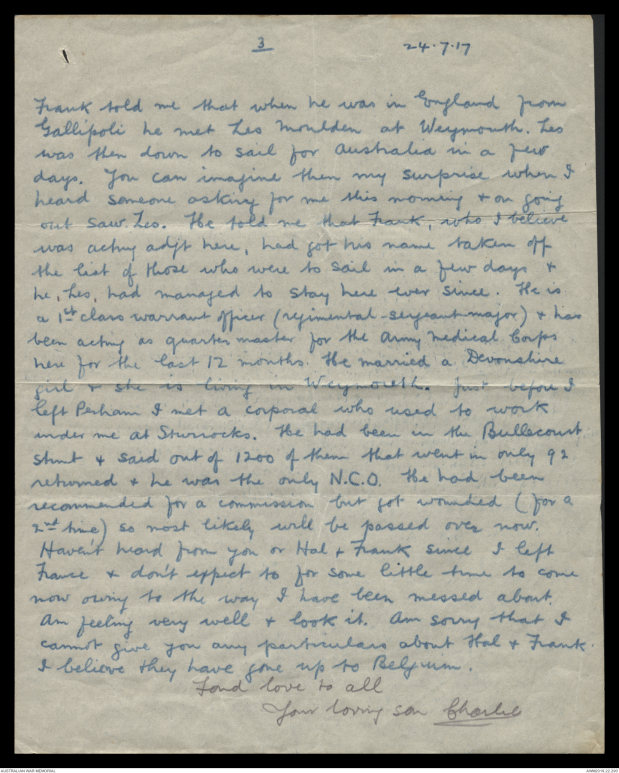 3
24.7.17
Frank told me that when he was in England from
Gallipoli he met Les Moulden at Weymouth. Les
was then down to sail for Australia in a few
days. You can imagine then my surprise when I
heard someone asking for me this morning & on going
out saw Les. He told me that Frank, who I believe
was acting adjt here, had got his name taken off
the list of those who were to sail in a few days &
he, Les, had managed to stay here ever since. He is
a 1st class warrant officer (regimental-sergeant-major) & has
been acting as quarter master for the Army Medical Corps
here for the last 12 months. He married a Devonshire
girl & she is living in Weymouth. Just before I
left Perham I met a corporal who used to work
under me at Sturrocks. He had been in the Bullecourt
stunt & said out of 1200 of them that went in only 92
returned & he was the only N.C.O. He had been
recommended for a commission but got wounded (for a
2nd time) so most likely will be passed over now.
Haven't heard from you or Hal & Frank since I left
France & don't expect to for some little time to come
now owing to the way I have been messed about.
Am feeling very well & look it. Am sorry that I
cannot give you any particulars about Hal & Frank.
I believe they have gone up to Belgium.
Fond love to all
Your loving son Charlie
AUSTRALIAN WAR MEMORIAL